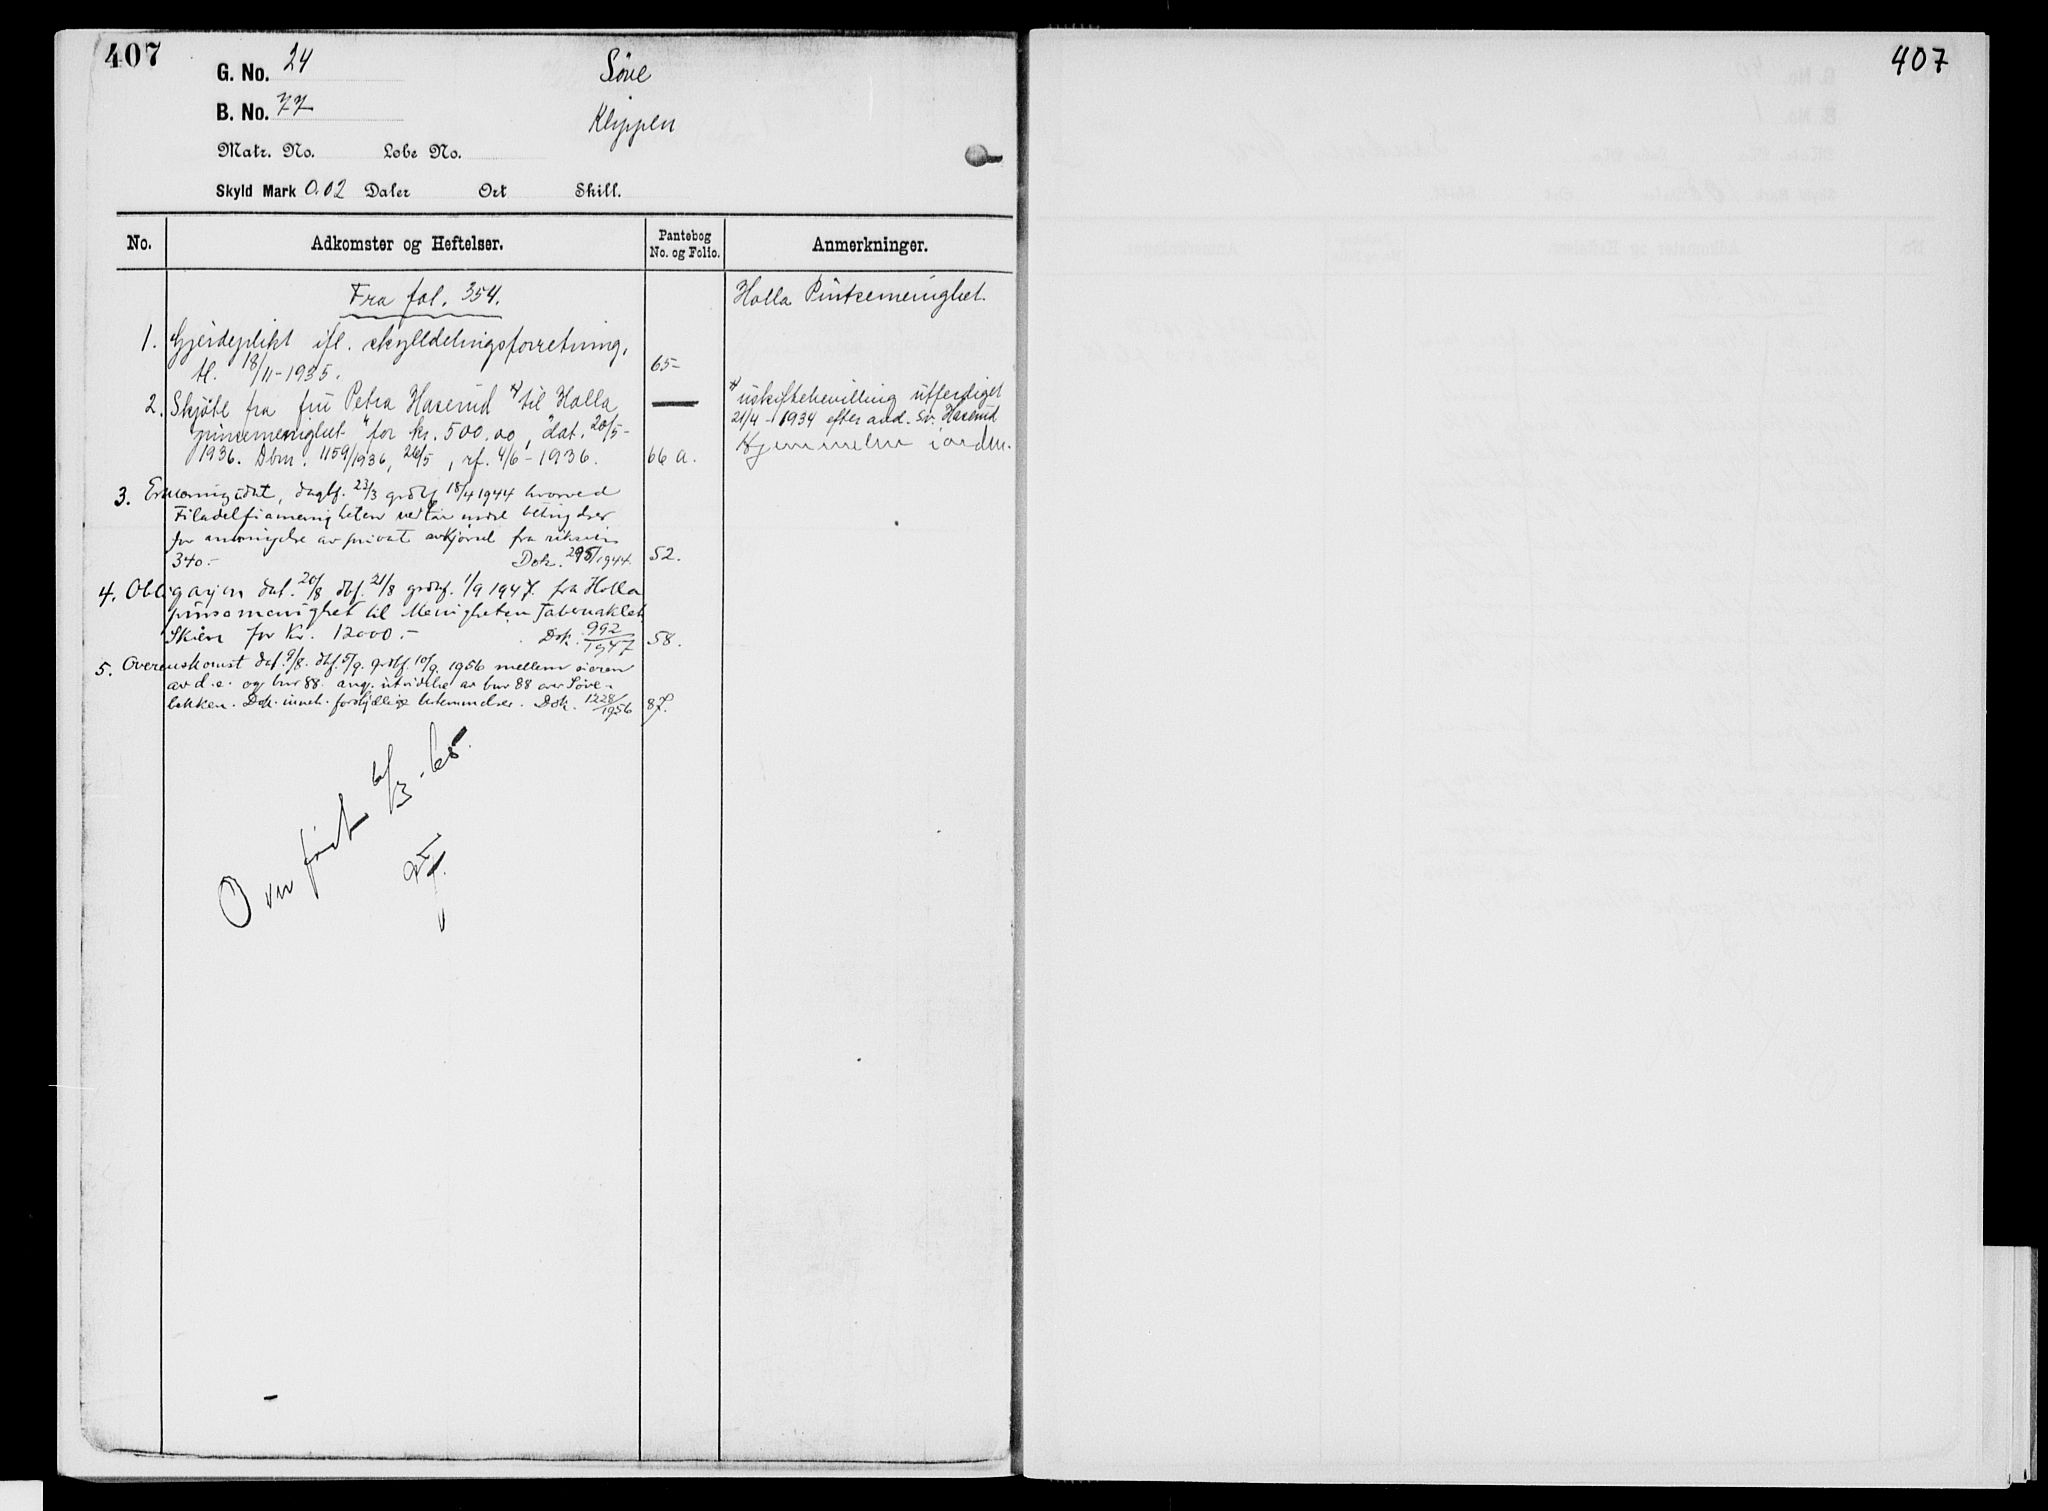 407
G. No. 24 Söve
B. No. 77 Klyppen
Matr. No. Løbe No.
Skyld Mark 0.02 Daler Ort Skill.
No. Adkomster og Heftelser. Pantebog No. og Folio. Anmerkninger.
Fra fol. 354. Holla Pintsemenighet.
1. Gjerdeplikt ifl. skylldelingsforretning,
tl. 18/11-1935. 65-
2. Skjöte fra fru Petra Haserud x) til Holla
pinsemenighet" for kr. 500.00, dat. 20/5-
1936. Dbnr. 1159/1936, 26/5, rf. 4/6-1936. 66 a.
x) uskiftebevilling utferdiget
21/4-1934 efter avd. Sv. Haserud
Hjemmelen i orden.
3. Erklæring dat, dagbf. 23/3 grdbf 18/4 1944 hvorved
Filadelfiamenigheten vedtar endel betingelser
for anbringelse av privat avkjörsel fra riksvei
340.- Dok. 295/1944. 52.
4. Obligasjon dat. 20/8 dbf. 21/8 grdbf. 1/9 1947. fra Holla
pinsemenighet til Menigheten Tabernaklet
Skien for Kr. 12000.- Dok. 992/1947 58.
5. Overenskomst dat. 9/8. dbf. 5/9. grdbf. 10/9. 1956 mellem eieren
av d.e. og bnr 88. ang. utvidelse av bnr 88 over Söve-
bekken. Dok. inneh. forskjellige bestemmelser. Dok. 1228/1956 87.
Overført 6/3-65.
407